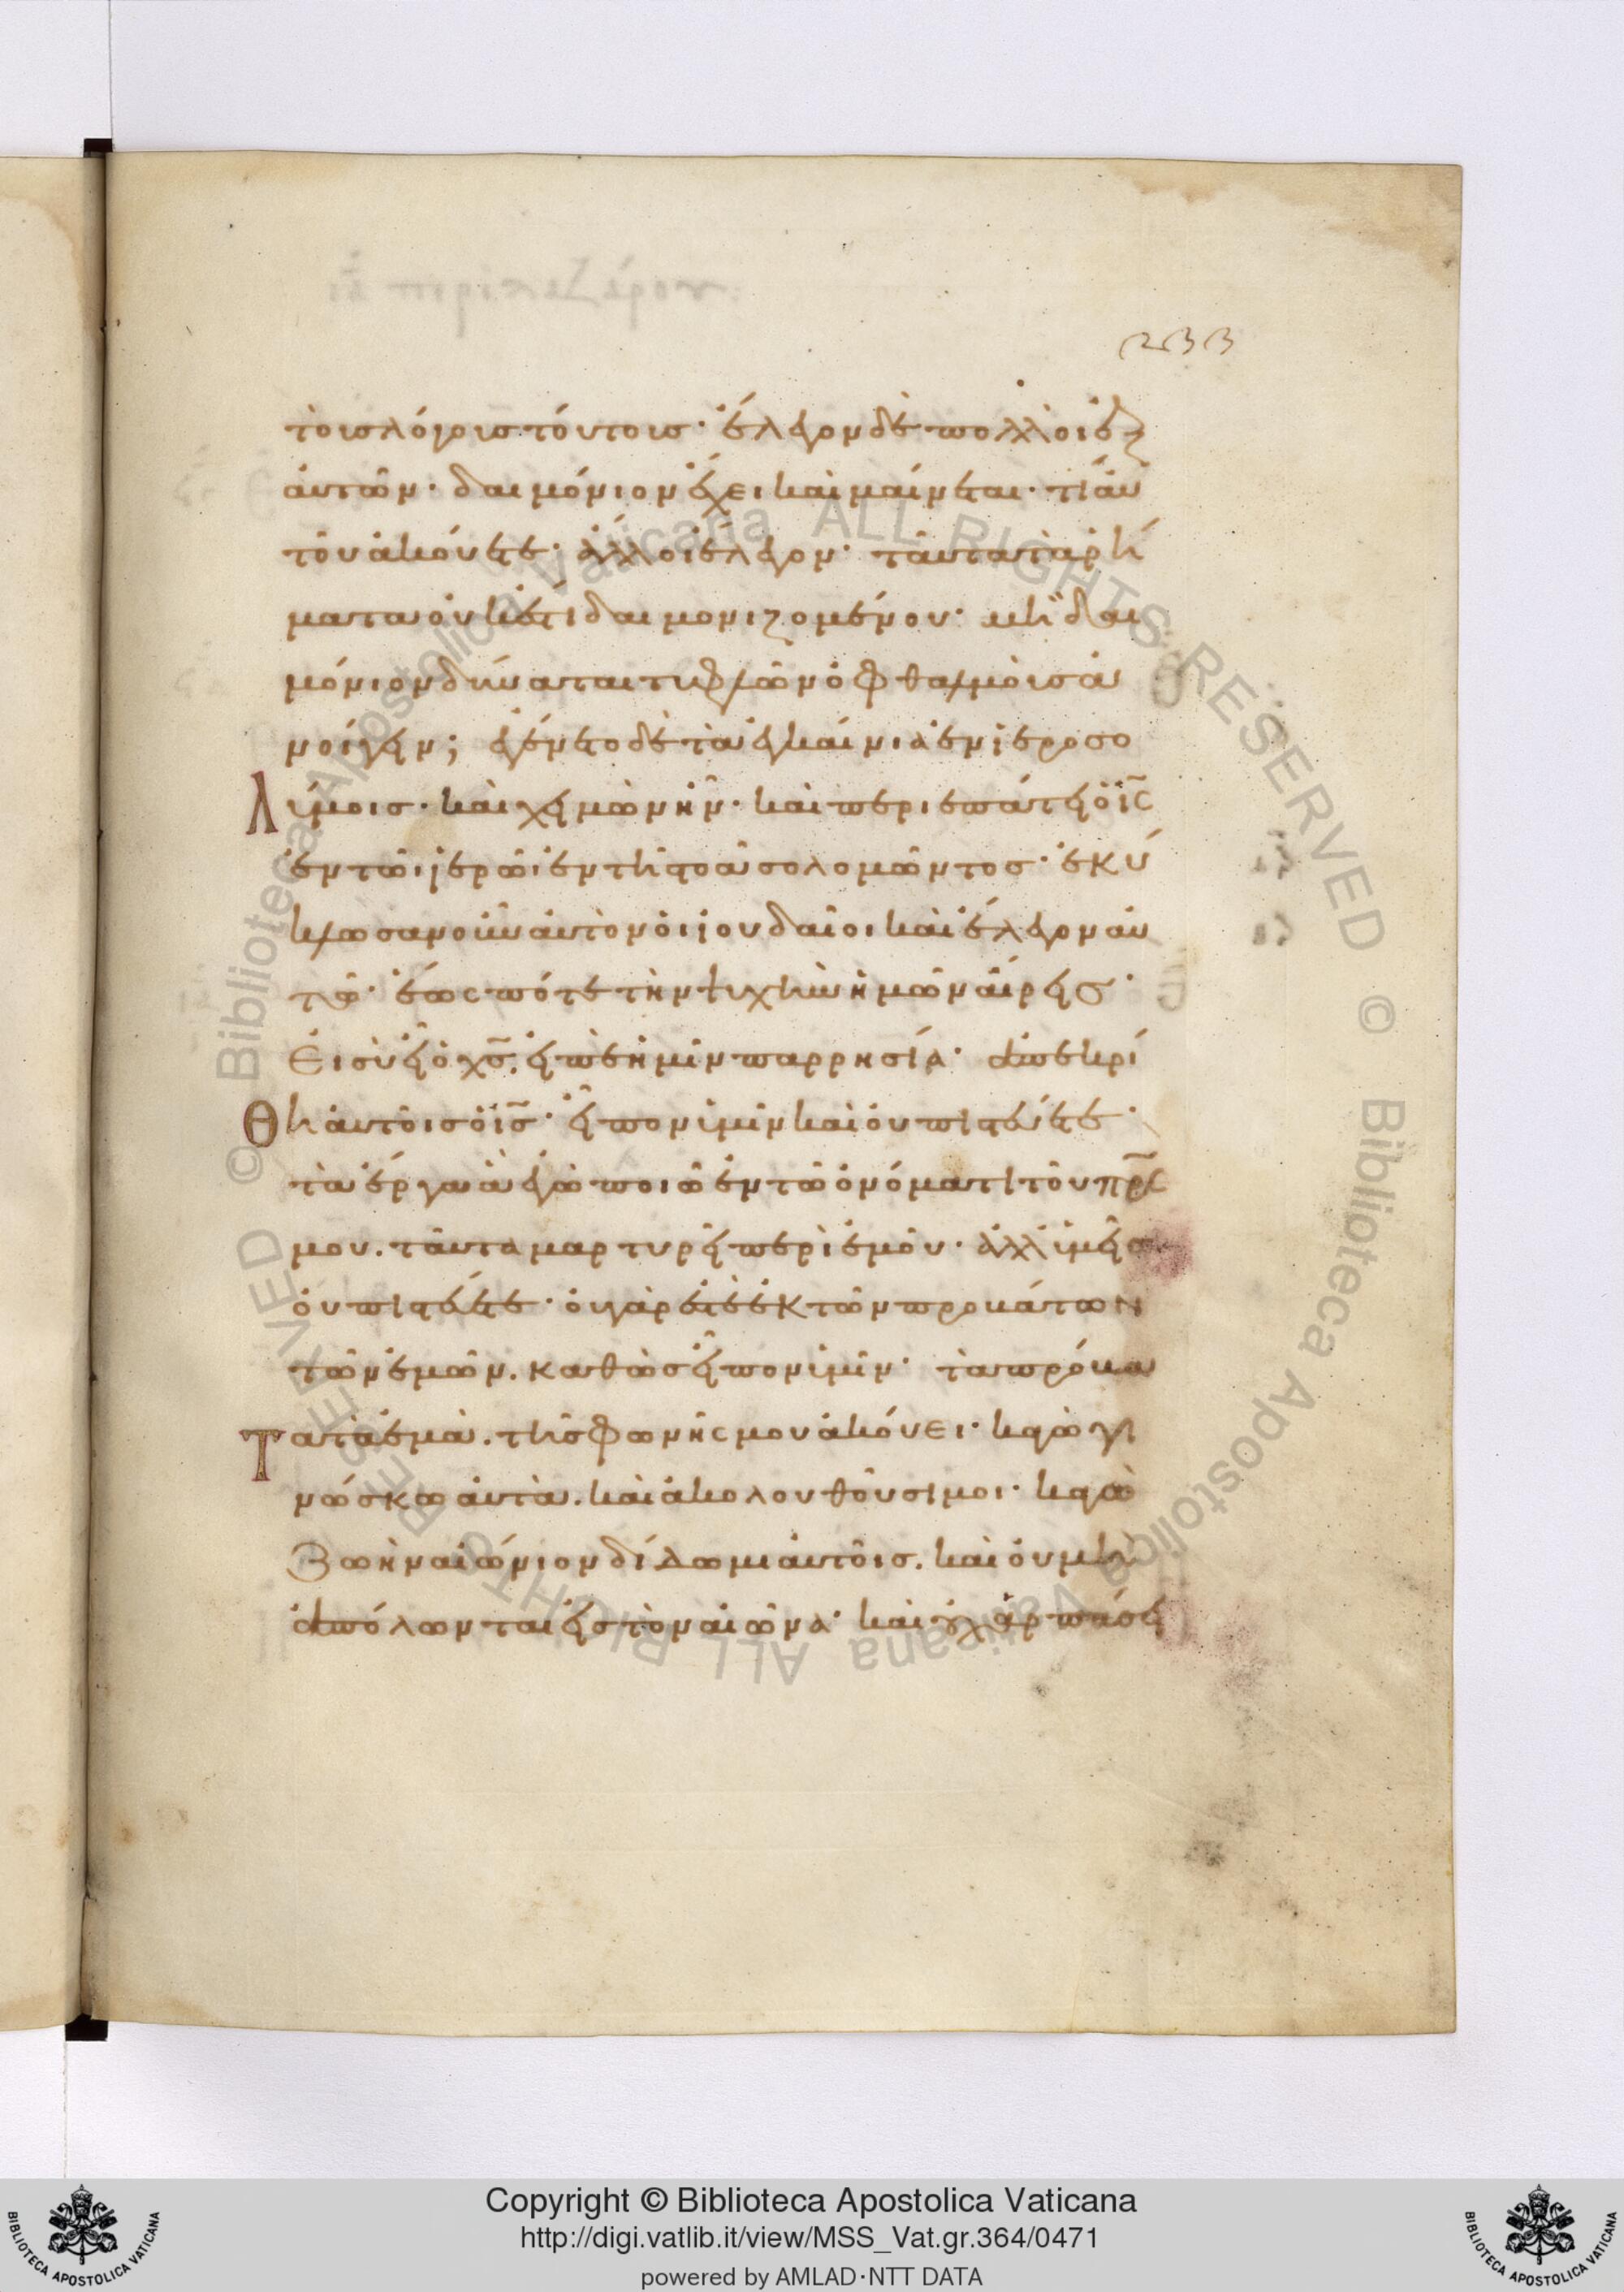 233
τοὺς λόγους τούτους· ἔλεγον δὲ πολλοὶ ἐξ
αὐτῶν· δαιμόνιον ἔχει καὶ μαίνεται· τί αὐ
τοῦ ἀκούετε· ἄλλοι ἔλεγον· ταῦτα τὰ ῥή
ματα οὐκ ἔστι δαιμονιζομένου· μὴ δαι
μόνιον δύναται τυφλῶν ὀφθαλμοὺς ἀ
νοίγειν; ἐγένετο δὲ τὰ ἐγκαίνια ἐν ἱεροσο
λύμοις· καὶ χειμὼν ἦν· καὶ περιεπάτει ὁ ἰς
ἐν τῶι ἱερῶι ἐν τῆ στοᾶ σολομῶντος· ἐκύ
κλωσαν οὖν αὐτὸν οἱ ἰουδαῖοι καὶ ἔλεγον αὐ
τῶ· ἕως πότε τὴν ψυχὴν ἡμῶν αἴρεις·
εἰ σὺ εἶ ὁ χς, εἰπὲ ἡμῖν παρρησία· ἀπεκρί
θη αὐτοῖς ὁ ις· εἶπον ὑμῖν καὶ οὐ πιστεύετε·
τὰ ἔργα ἃ ἐγὼ ποιῶ ἐν τῶ ὀνόματι τοῦ πρς
μου. ταῦτα μαρτυρεῖ περὶ ἐμοῦ· ἀλλ ὑμεῖς
οὐ πιστεύετε· οὐ γάρ ἐστὲ ἐκ τῶν προβάτων
τῶν ἐμῶν. καθὼς εἶπον ὑμῖν· τὰ πρόβα
τα τὰ ἐμὰ. τῆς φωνῆς μου ἀκούει· κἀγὼ γι
νώσκω αὐτὰ. καὶ ἀκολουθοῦσί μοι· κἀγὼ
ζωὴν αἰώνιον δίδωμι αὐτοῖς. καὶ οὐ μὴ
ἀπόλωνται εἰς τὸν αἰῶνα· καὶ οὐχ ἁρπάσει
Copyright © Biblioteca Apostolica Vaticana
http://digi.vatlib.it/view/MSS_Vat.gr.364/0471
powered by AMLAD·NTT DATA
BIBLIOTECA APOSTOLICA VATICANA
BIBLIOTECA APOSTOLICA VATICANA
© Biblioteca Apostolica Vaticana ALL RIGHTS RESERVED
© Biblioteca Apostolica Vaticana ALL RIGHTS RESERVED